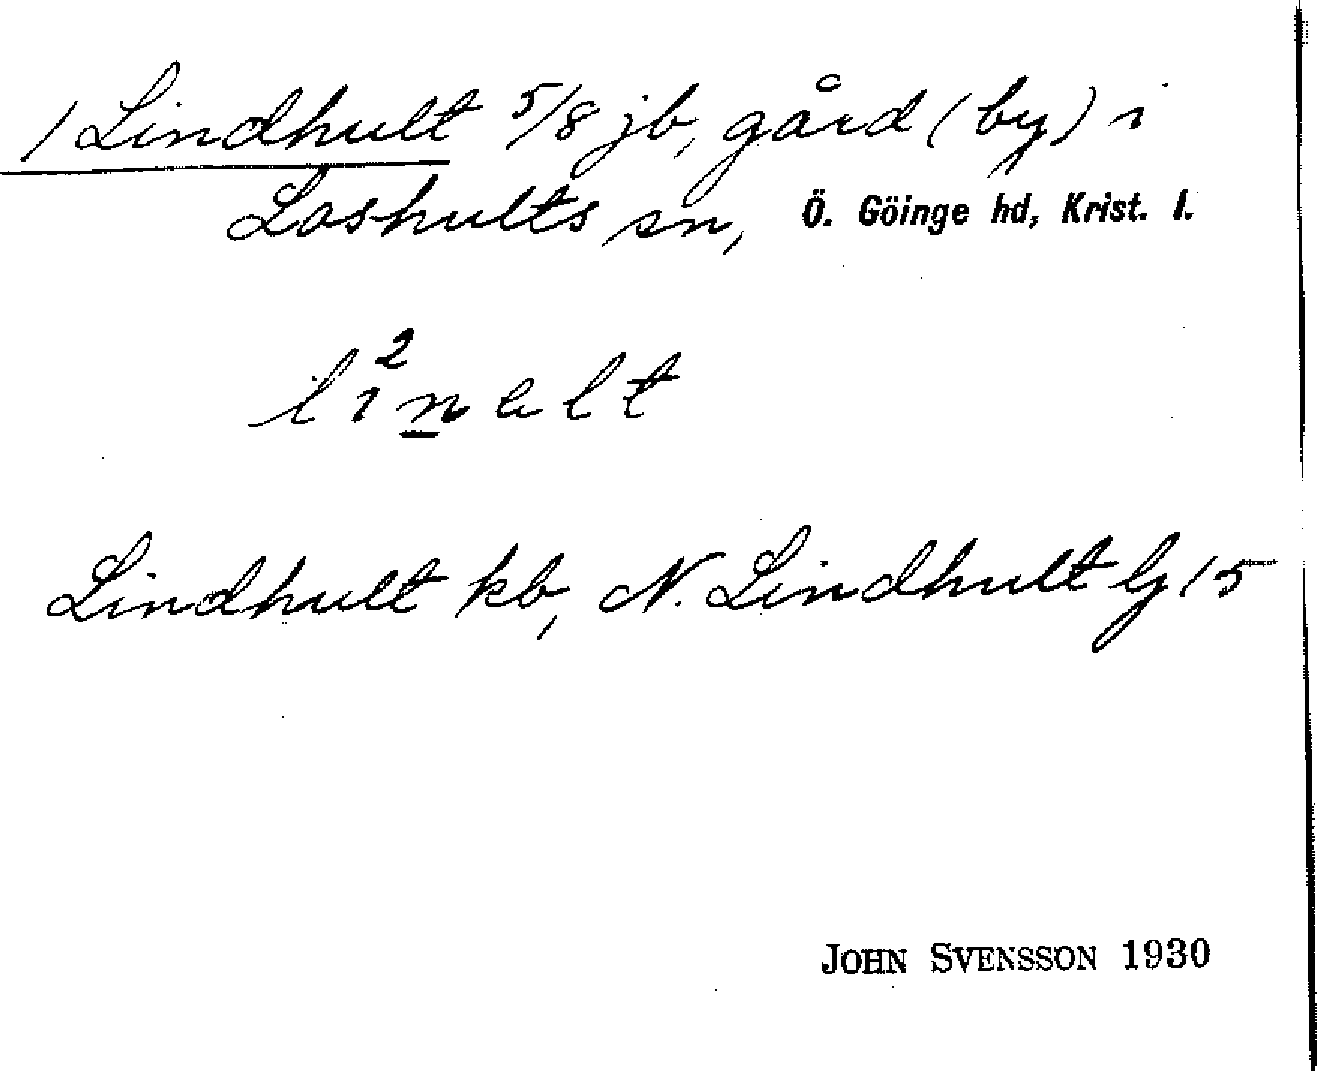 1 Lindhult 5/8 jb, gård (by) i
Loshults sn, Ö. Göinge hd, Krist. l.
li²n̲elt
Lindhult kb, N. Lindhult lj 15
JOHN SVENSSON 1930